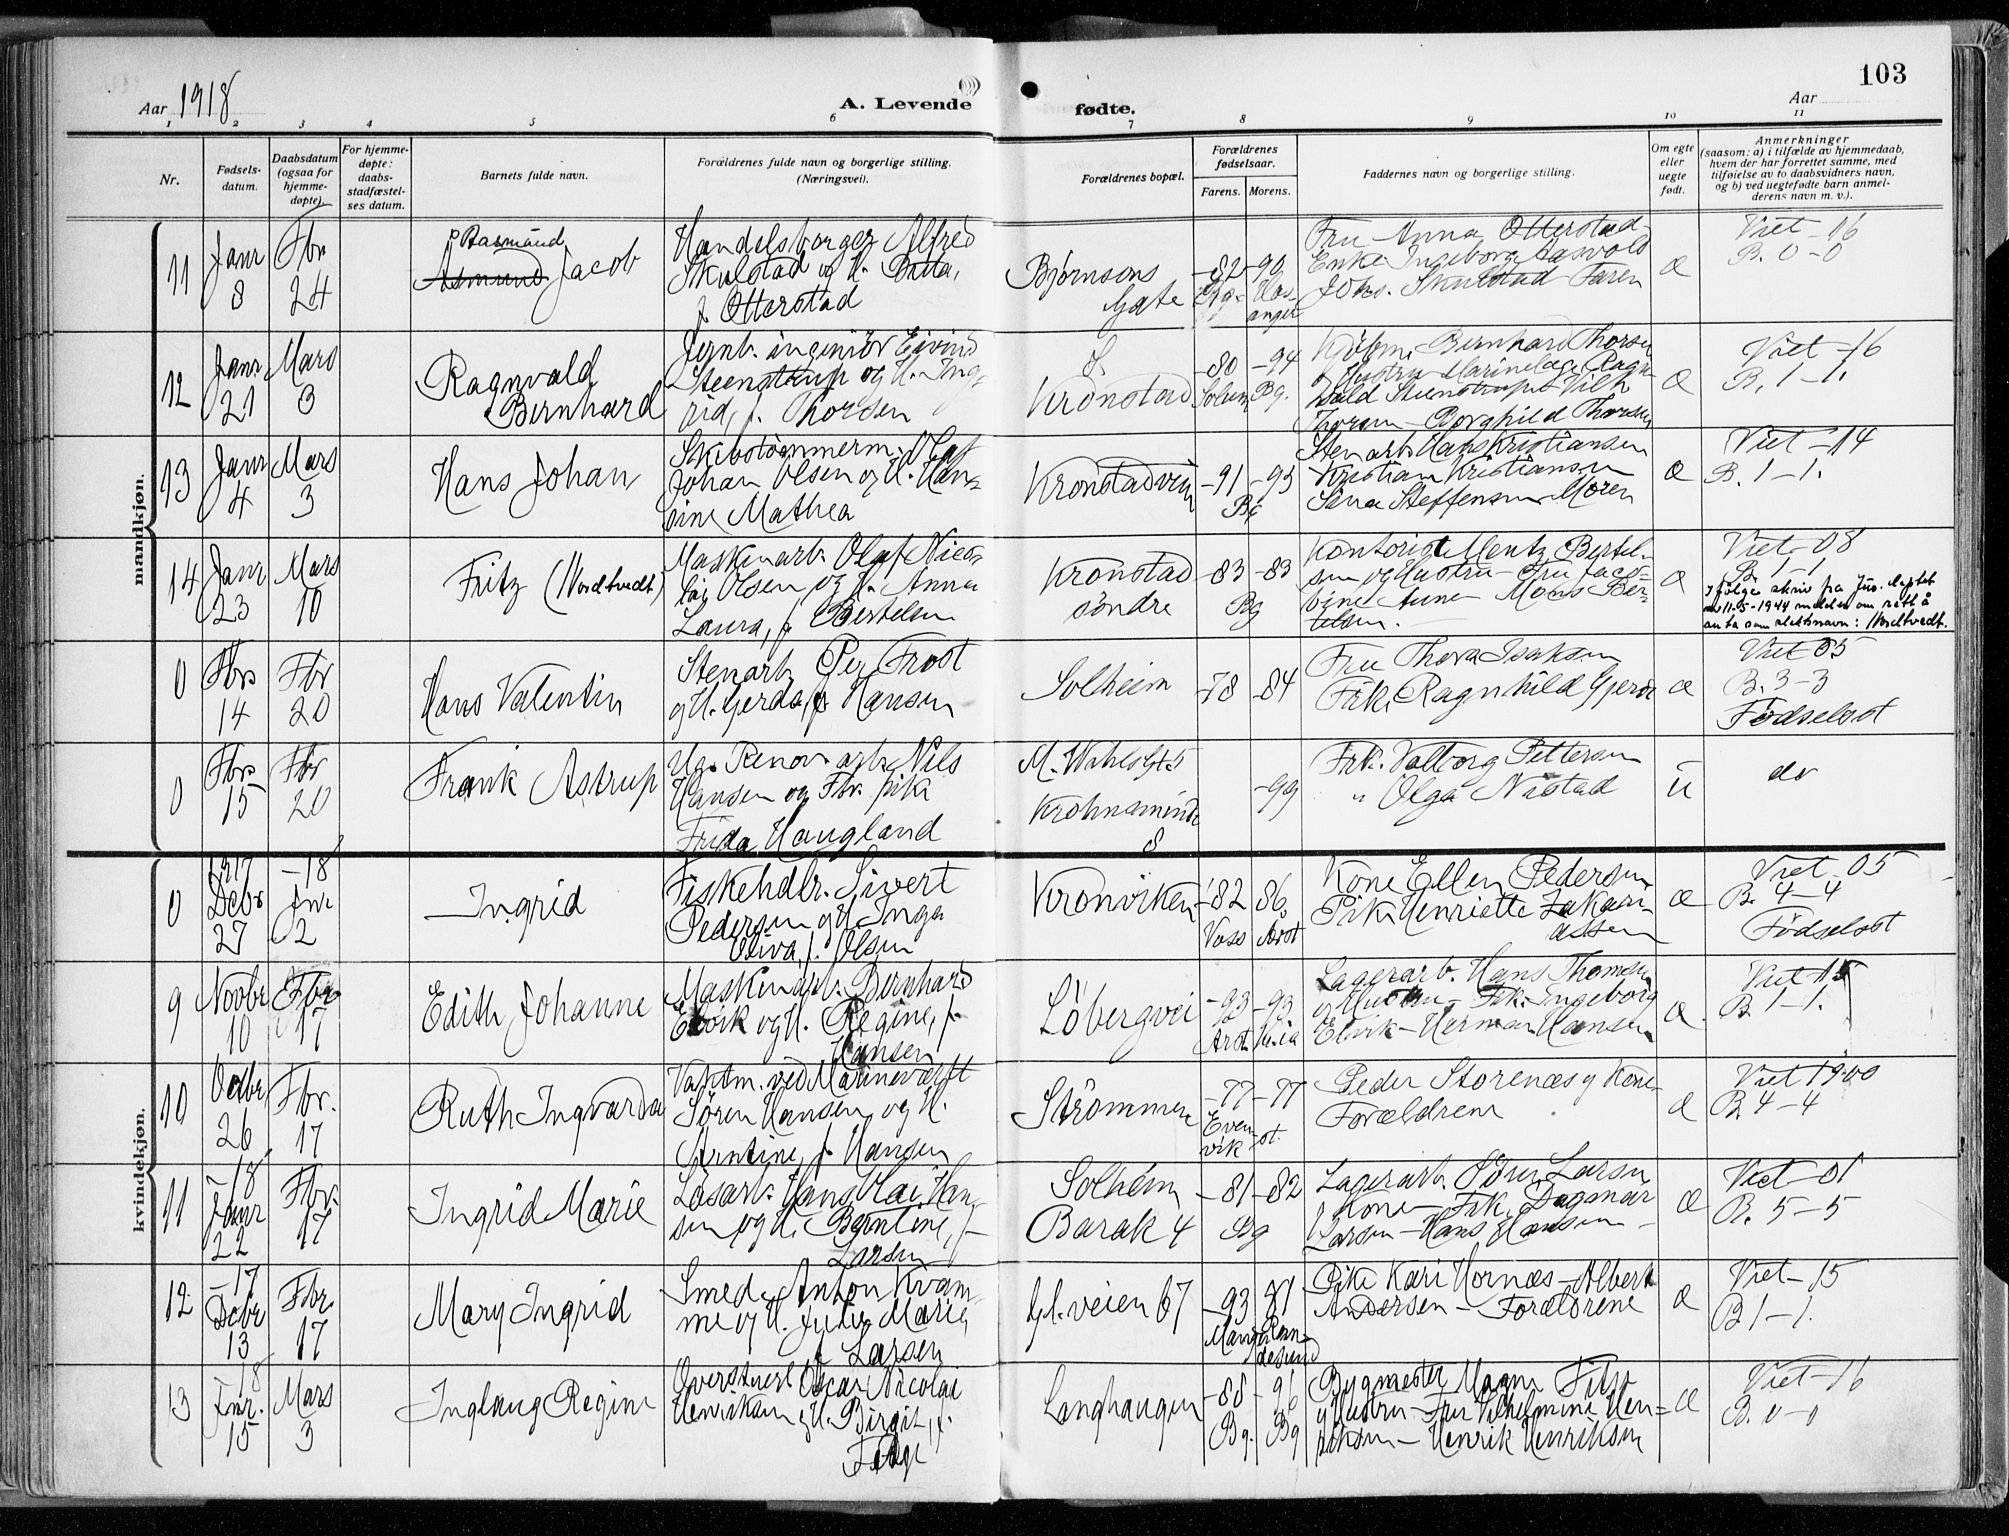 103
Aar 1918
A. Levende
fødte.
Aar
1 2 3 4 5 6 7 8 9 10 11
Nr.
Fødsels-
datum.
Daabsdatum
(ogsaa for
hjemme-
døpte).
For hjemme-
døpte:
daabs-
stadfæstel-
ses datum.
Barnets fulde navn.
Forældrenes fulde navn og borgerlige stilling.
(Næringsvei).
Forældrenes bopæl.
Forældrenes
fødselsaar.
Farens. Morens.
Faddernes navn og borgerlige stilling.
Om egte
eller
uegte
født.
Anmerkninger
(saasom: a) i tilfælde av hjemmedaab,
hvem der har forrettet samme, med
tilføielse av to daabsvidners navn,
og b) ved uegtefødte barn anmel-
derens navn m. v.).
mandkjøn.
11
Janr
8
Fbr
24
Rasmund
Asmund Jacob
Handelsborger Alfred
Skulstad og H.
f. Otterstad
Bjørnsons
Gate
-82 -90
Fru Anna Otterstad
Enke Ingeborg Aasvold
Johs. Skulstad Faren
æ
Viet -16
B. 0-0
12
Janr
21
Mars
3
Ragnvald
Bernhard
Jernb. ingeniør Eivind
Steenstrup og H. Ing-
rid, f. Thorsen
S.
Kronstad
-80 -94
Bg.
Kjøbm. Bernhard Thorsen
og Hustru
Thorsen - Borghild Thorsen
æ
Viet -16
B. 1-1.
13
Janr
4
Mars
3
Hans Johan
Skibstømmerm. Olaf
Johan Olsen og H. Han-
sine Mathea
Kronstadvein
-91 -93
Bg
Stenarb. Hans Kristiansen
Kristian Kristiansen
Sina Steffensen - Moren
æ
Viet -14
B. 1-1.
14
Janr
23
Mars
10
Fritz (Nordtvedt)
Maskinarb. Olaf Nico-
lai Olsen og H. Anna
Laura, f. Bertelsen
Kronstad
søndre
-83 -83
Bg
Kontorist Mentz Bertel-
sen og Hustru - Fru Jaco-
bine Aune - Mons Ber-
telsen.
æ
Viet -08
B. 1-1
Ifølge skriv fra Jus. deptet
av 11-5-1944 meldes om rett å
anta som slektsnavn: Nordtvedt.
0
Fbr
14
Fbr
20
Hans Valentin
Stenarb. Per Frost
og H. Gerda, f. Hansen
Solheim
-78 -84
Fru Thora Isaksen
Frk. Ragnhild Gjerde
æ
Viet 05
B. 3-3
Fødselsst
0
Fbr
15
Fbr
20
Frank Astrup
Ug. Renov. arb. Nils
Hansen og Fbr. pike
Frida Haugland
M. Wahls Gt 5
Krohnsminde
-99
Frk. Valborg Pettersen
" Olga Nistad
u
do
kvindekjøn.
0
1917
Debr
27
-18
Jnr
2
Ingrid
Fiskehdlr. Sivert
Pedersen og H. Inga
Oliva, f. Olsen
Kronviken
-82 86
Voss Arst
Kone Ellen Pedersen
Pike Henriette Zakari-
assen
æ
Viet -05
B. 4-4
Fødselsst
9
Novbr
10
Fbr
17
Edith Johanne
Maskinarb. Bernhard
Elvik og H. Regine, f.
Hansen
Løbergvei
-93 -93
Arst. Kr.ia
Lagerarb. Hans Thomsen
og Hustru - Frk. Ingeborg
Elvik - Herman Hansen
æ
Viet 15
B 1-1.
10
Octbr
26
Fbr.
17
Ruth Ingvarda
Vaktm. ved Marineværft
Søren Hansen og H.
Arntine, f. Hansen
Strømmen
-77 -77
Even-
vik
Peder Storenæs og Kone-
Forældrene
æ
Viet 1900
B. 4-4
11
-18
Janr
22
Fbr.
17
Ingrid Marie
Løsarb. Hans Olai Han-
sen og H. Berntine, f.
Larsen
Solheim
Barak 4
-81 -82
Bg
Lagerarb. Søren Larsen
Kone - Frk. Dagmar
Larsen - Hans Hansen -
æ
Viet -01
B. 5-5
12
-17
Debr
13
Fbr.
17
Mary Ingrid
Smed Anton Kvam-
me og H. Julie Marie
f. Larsen
Gl. veien 67
-93 81
Pike Kari Hornæs - Albert
Andersen - Forældrene
æ
Viet -15
B 1-1.
13
18
Jnr.
15
Mars
3
Inglaug Regine
Overstuert Oscar Nicolai
Henriksen og H. Birgit, f.
Langhaugen
-88 -96
Bg. Bg
Bygmester Magne
og Hustru - Fru Vilhelmine Hen-
riksen - Henrik Henriksen
æ
Viet -16
B. 0-0